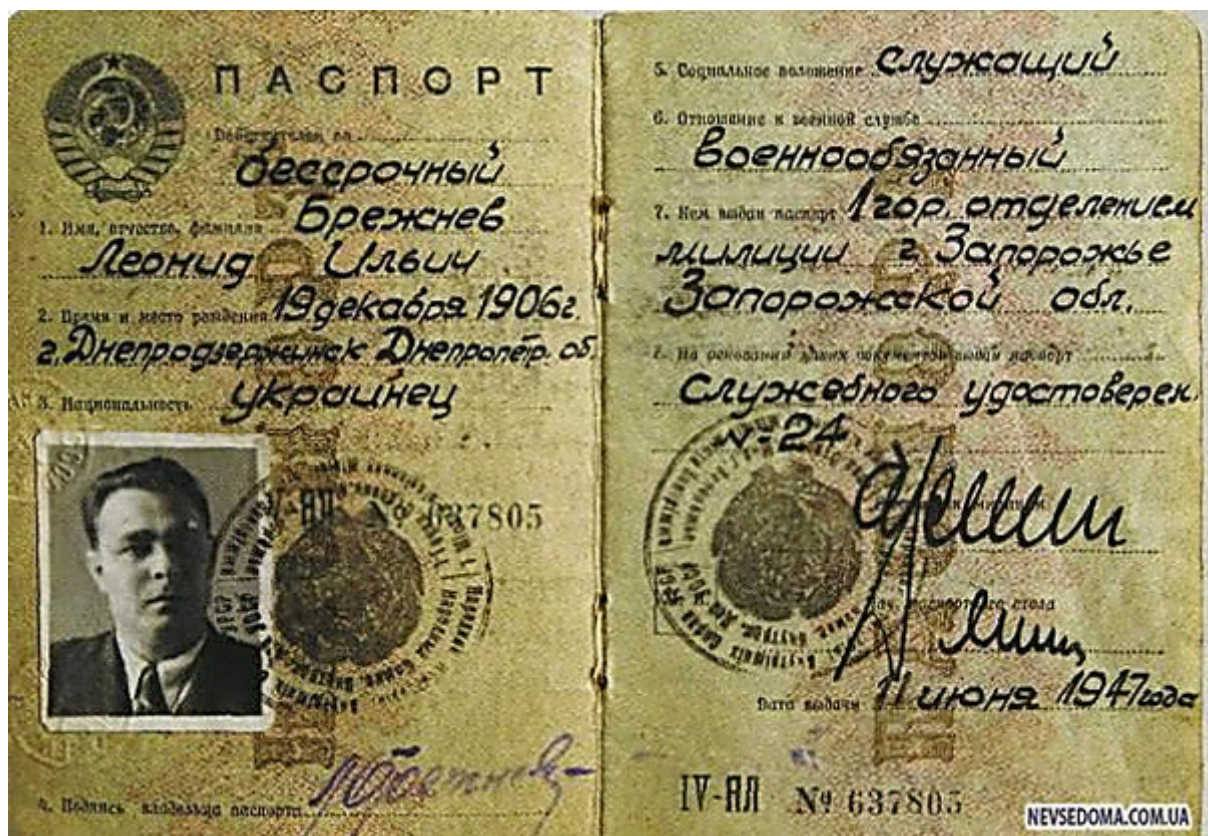 ПАСПОРТ
Действителен до
бессрочный
1. Имя, отчество, фамилия Брежнев
Леонид Ильич
2. Время и место рождения 19 декабря 1906 г.
г. Днепродзержинск Днепропетр. об.
3. Национальность украинец
IV-ЯЛ № 637805
4. Подпись владельца паспорта
5. Социальное положение служащий
6. Отношение к военной службе
военнообязанный
7. Кем выдан паспорт 1 гор. отделением
милиции г. Запорожье
Запорожской обл.
На основании каких документов выдан паспорт
Служебного удостоверен.
v-24
паспортного стола
Дата выдачи 11 июня 1947 года
IV-ЯЛ № 637805
NEVSEDOMA.COM.UA